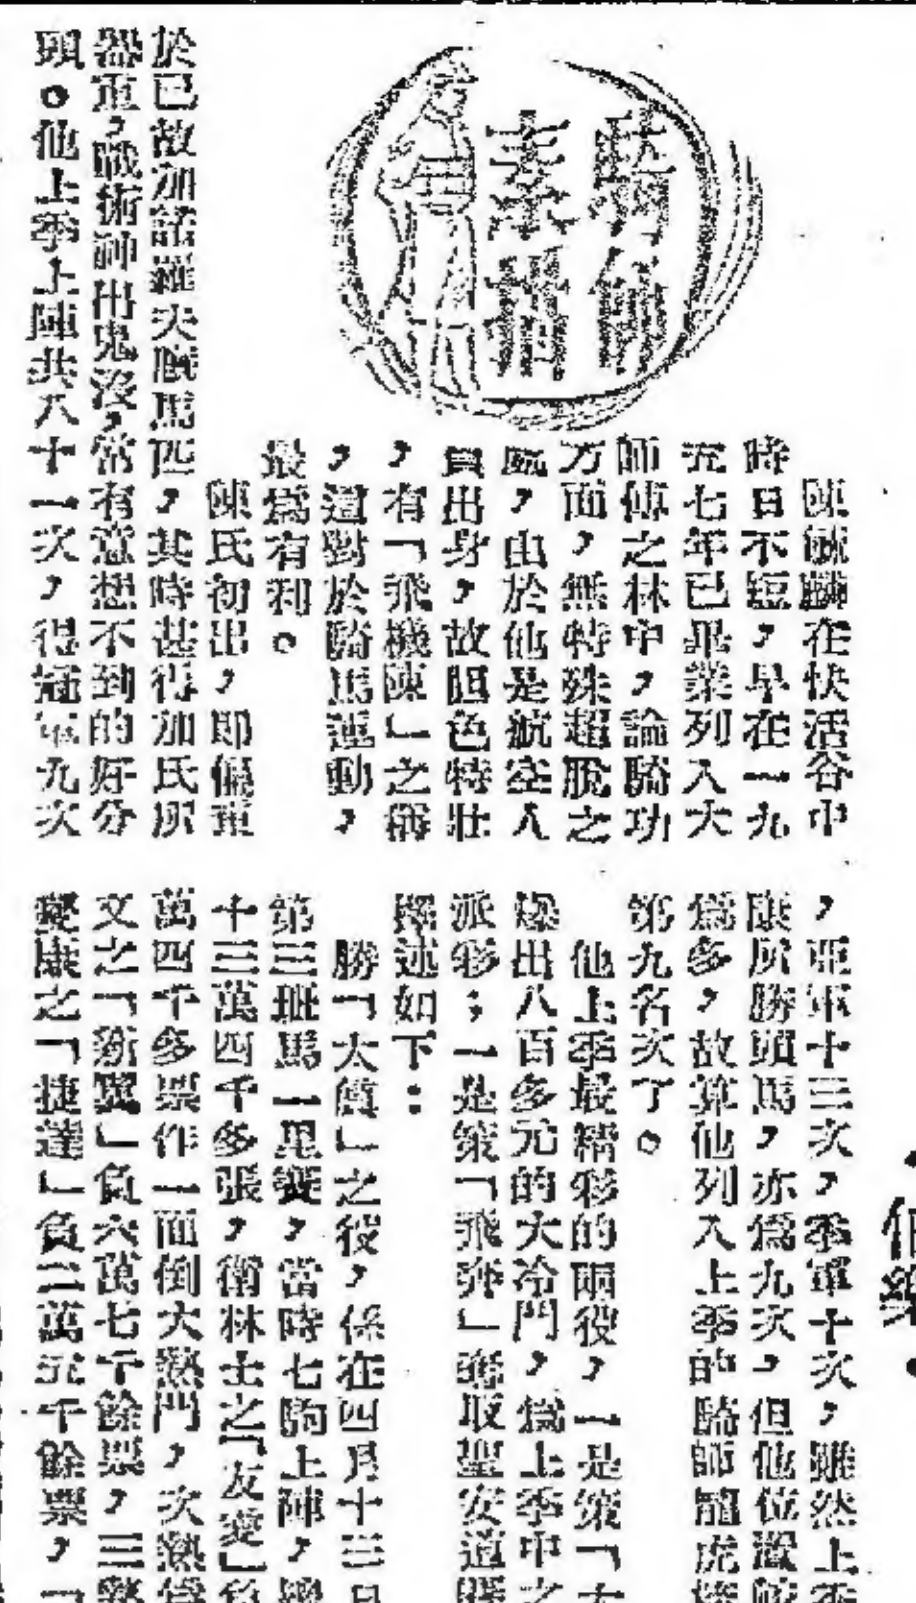 騎師
素描
伯樂
陳毓麟在快活谷中
時日不短，早在一九
五七年已畢業列入大
師傅之林中，論騎功
方面，無特殊超脫之
處，由於他是航空人
員出身，故胆色特壯
，有「飛機陳」之稱
，這對於騎馬運動，
最為有利。
陳氏初出，即偏重
於已故加諾羅夫廐馬匹，其時甚得加氏所
器重，戰術神出鬼沒，常有意想不到的好分
頭。他上季上陣共八十一次，得冠軍九次
，亞軍十三次，季軍十次，雖然上季
康所勝頭馬，亦為九次，但他位置
為多，故算他列入上季的騎師龍虎榜
第九名次了。
他上季最精彩的兩役，一是策「太
爆出八百多元的大冷門，為上季中之
派彩；一是策「飛奔」奪取聖安道
擇述如下：
勝「太 」之役，係在四月十三日
第三班馬一里賽，當時七駒上陣，總
十三萬四千多張，衛林士之「友愛」負
萬四千多票作一面倒大熱門，次熱為
文之「新翼」負六萬七千餘票，三熱
康之「捷達」負二萬五千餘票，「